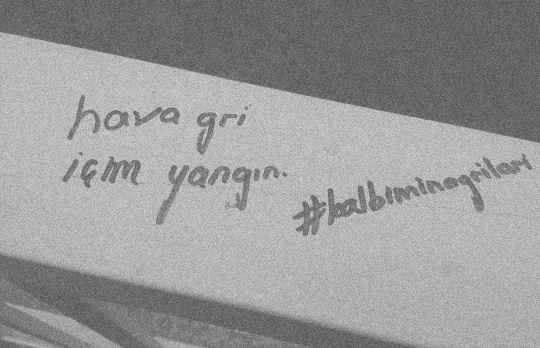 hava gri
içim yangın.
#kalbiminegrileri